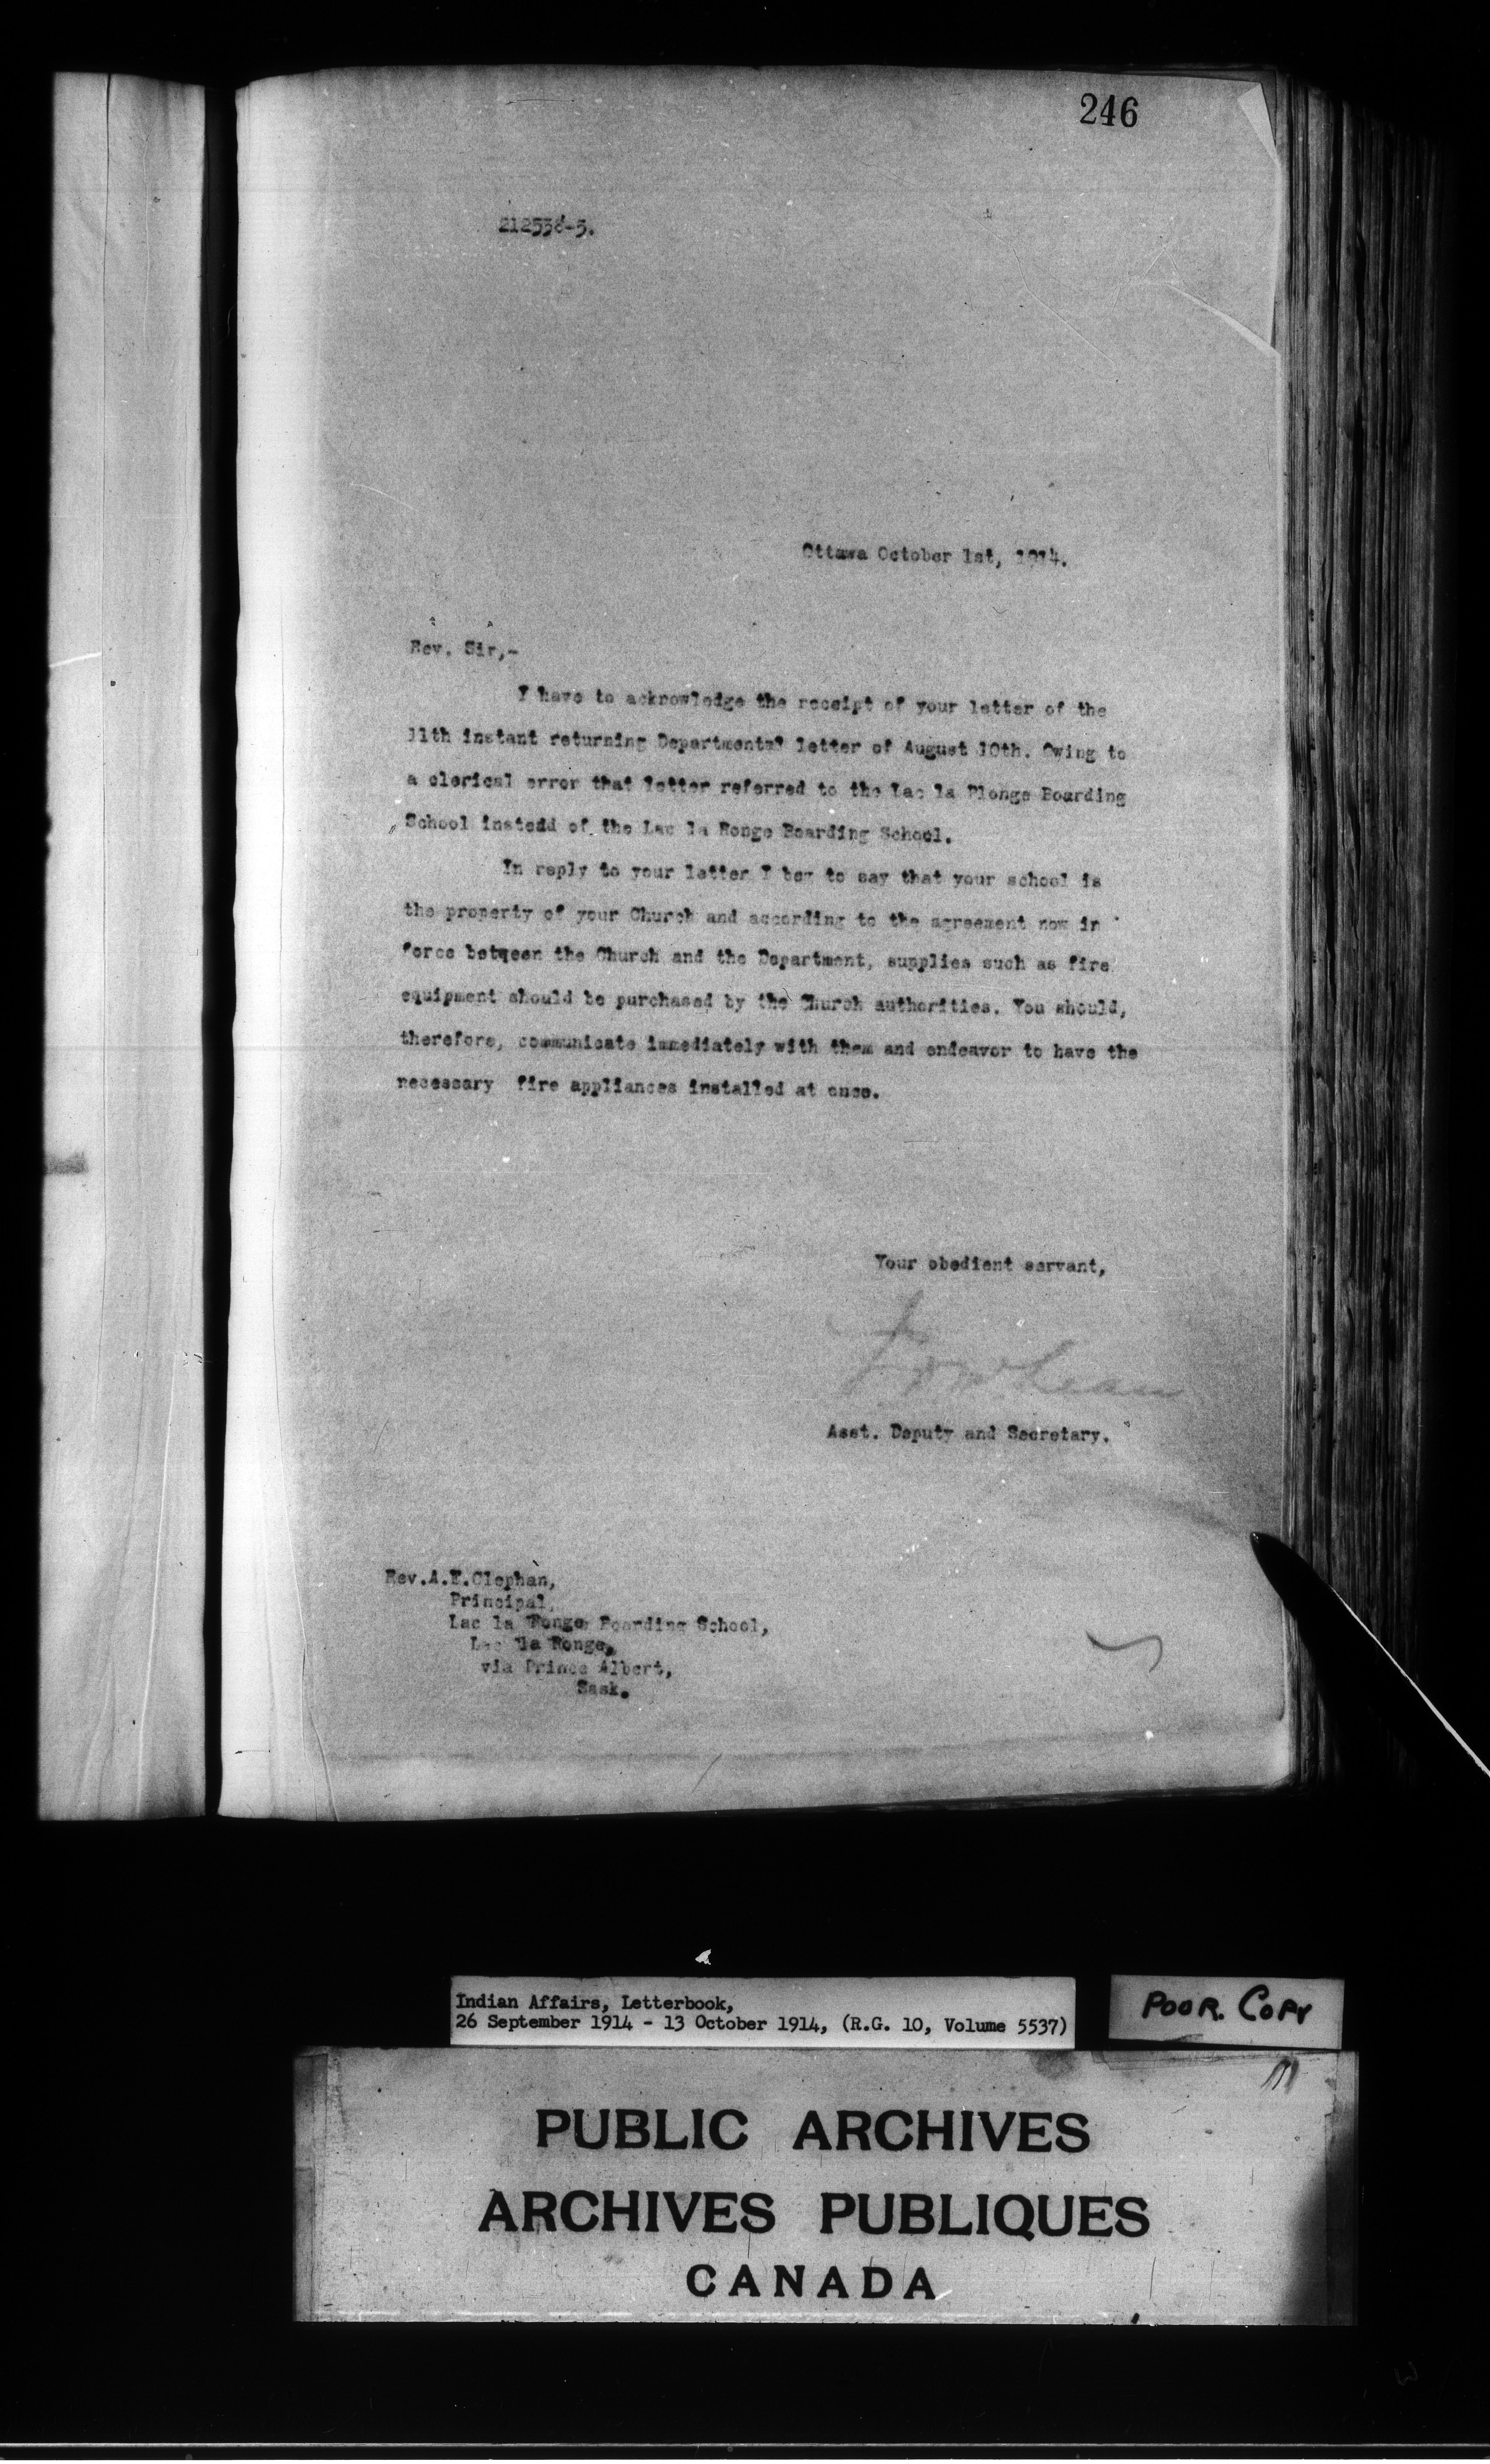 246
212538-5.
Ottawa October 1st, 1914.
Rev. Sir,-
I have to acknowledge the receipt of your letter of the
11th instant returning Departmental letter of August 10th. Owing to
a clerical error that letter referred to the Lac la Plonge Boarding
School instead of the Lac la Ronge Boarding School.
In reply to your letter I beg to say that your school is
the property of your Church and according to the agreement now in
force between the Church and the Department, supplies such as fire
equipment should be purchased by the Church authorities. You should,
therefore, communicate immediately with them and endeavor to have the
necessary fire appliances installed at once.
Your obedient servant,
Asst. Deputy and Secretary.
Rev.A.E.Clephan,
Principal,
Lac la Ronge Boarding School,
Lac la Ronge,
via Prince Albert,
Sask.
Indian Affairs, Letterbook,
26 September 1914 - 13 October 1914, (R.G. 10, Volume 5537)
POOR. COPY
PUBLIC ARCHIVES
ARCHIVES PUBLIQUES
CANADA